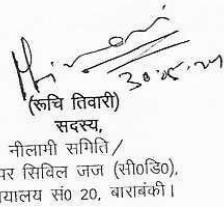 30.05.24
(रूचि तिवारी)
सदस्य,
नीलामी समिति/
पर सिविल जज (सी०डि०),
यालय सं० 20, बाराबंकी।